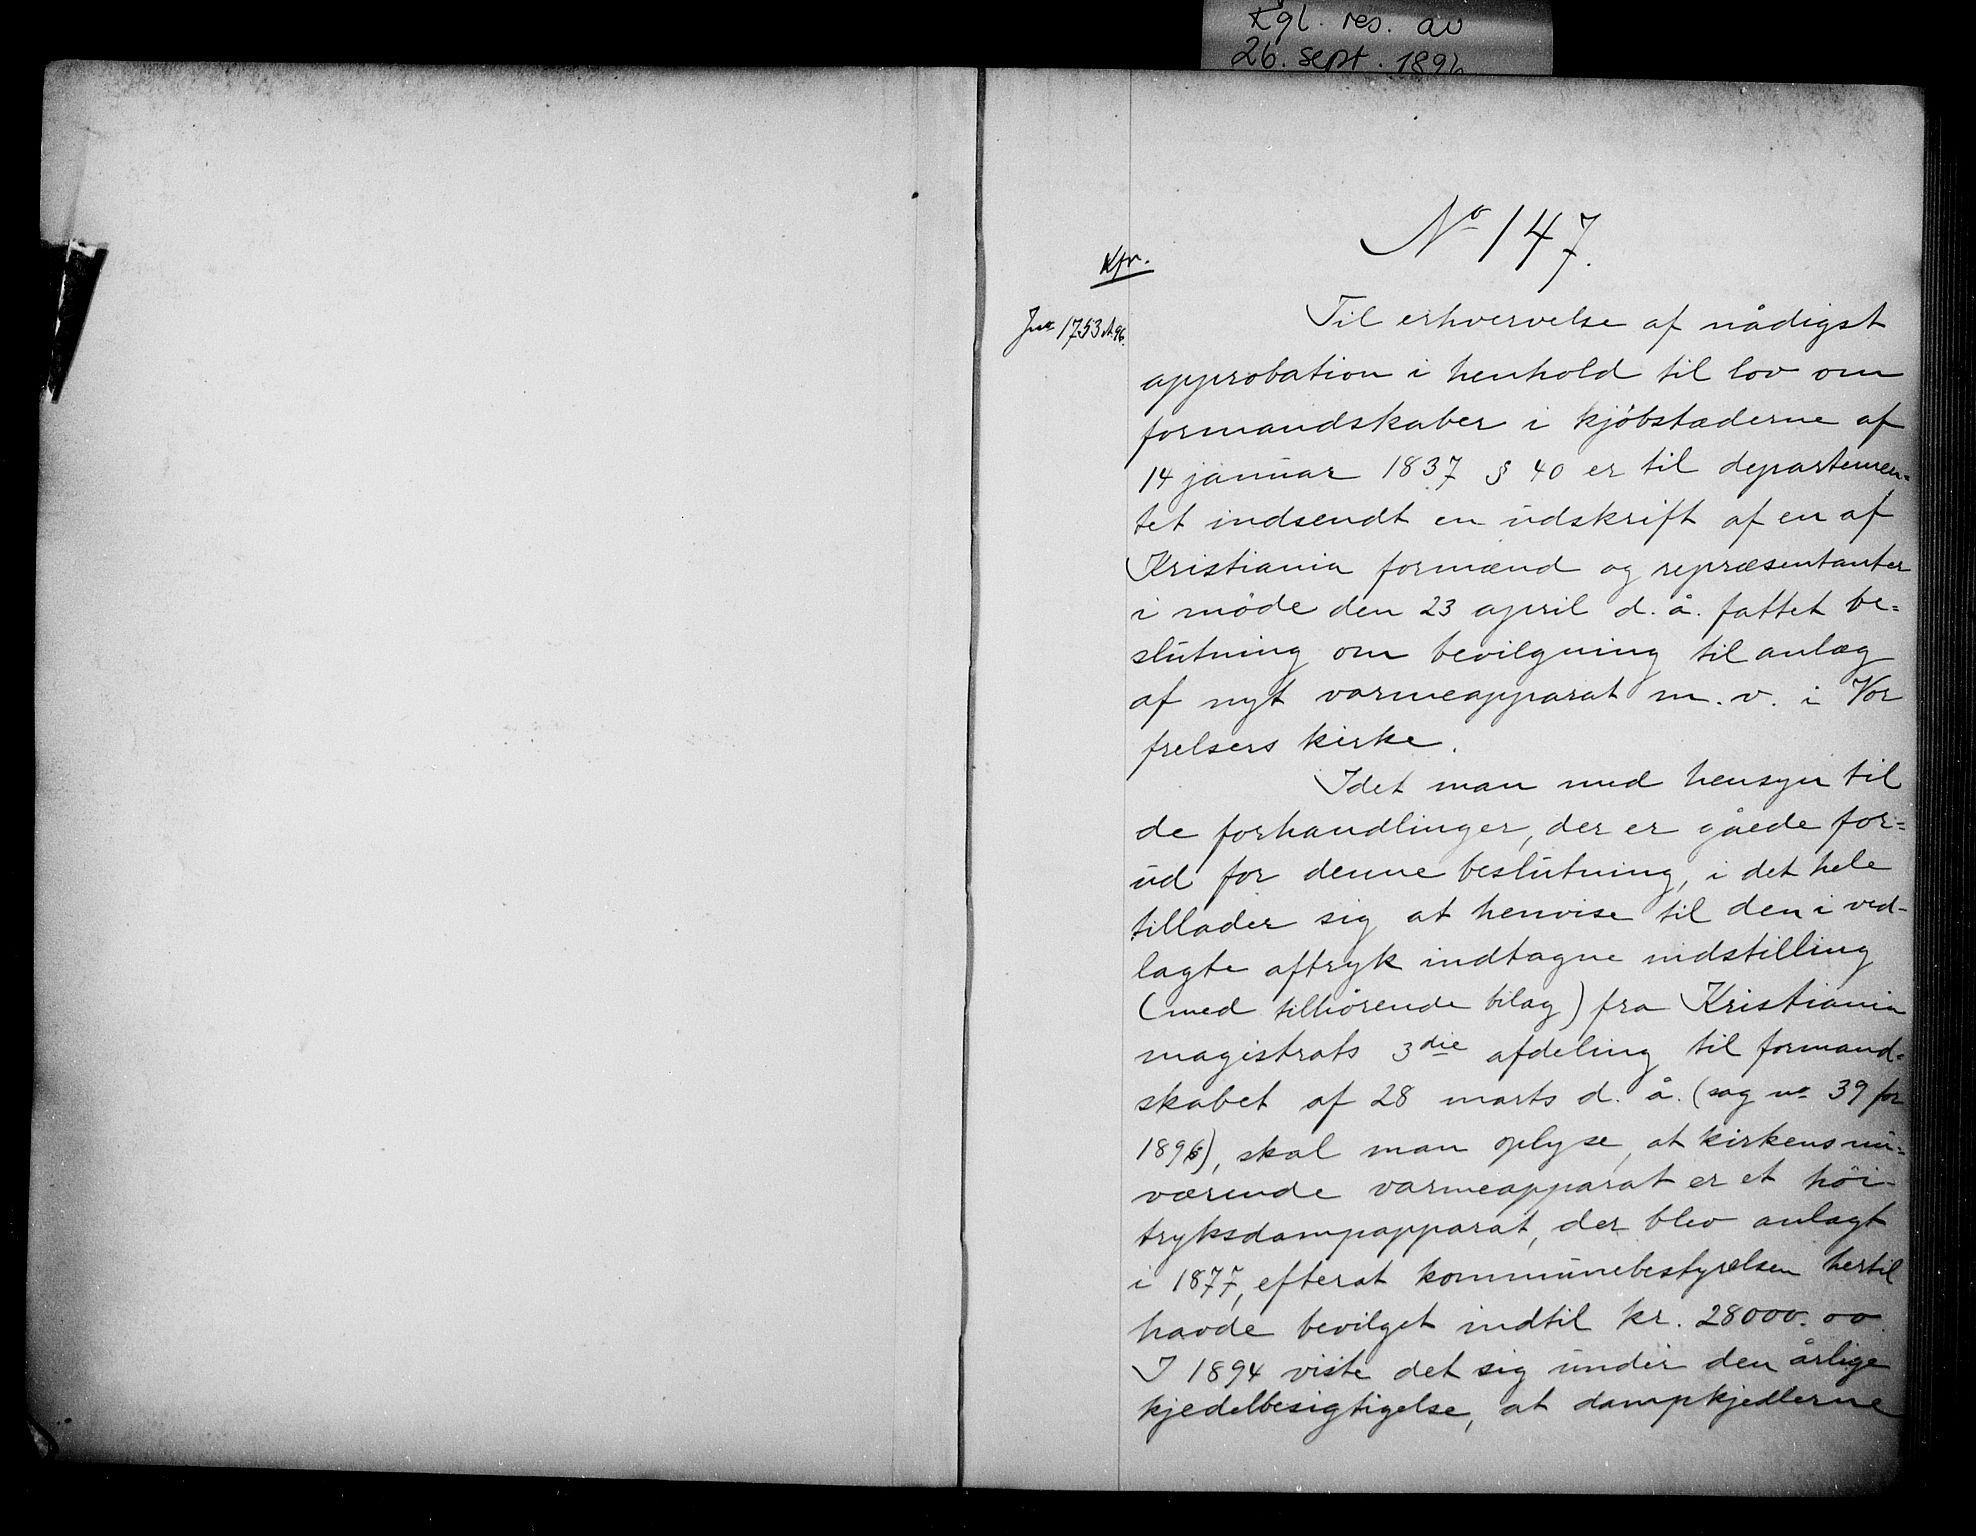 Kgl. res. av
26. sept. 1896
Nº 147.
Kfr.
Jnº 1753 A. 96.
Til erhvervelse af nådigst
approbation i henhold til lov om
formandskaber i kjöbstæderne af
14 januar 1837 § 40 er til departemen=
tet indsendt en udskrift af en af
Kristiania formænd og repræsentanter
i möde den 23 april d. å. fattet be=
slutning om bevilgning til anlæg
af nyt varmeapparat m. v. i Vor
frelsers kirke.
Idet man med hensyn til
de forhandlinger, der er gåede for=
ud for denne beslutning, i det hele
tillader sig at henvise til den i ved-
lagte aftryk indtagne indstilling
(med tilhörende bilag) fra Kristiania
magistrats 3die afdeling til formand=
skabet af 28 marts d. å. (sag nº 39 for
1896), skal man oplyse, at kirkens nu=
værende varmeapparat er et höi-
tryksdampapparat, der blev anlagt
i 1877, efterat kommunebestyrelsen hertil
havde bevilget indtil kr. 28000.00.
I 1894 viste det sig under den årlige
kjedelbesigtigelse, at dampkjedlerne